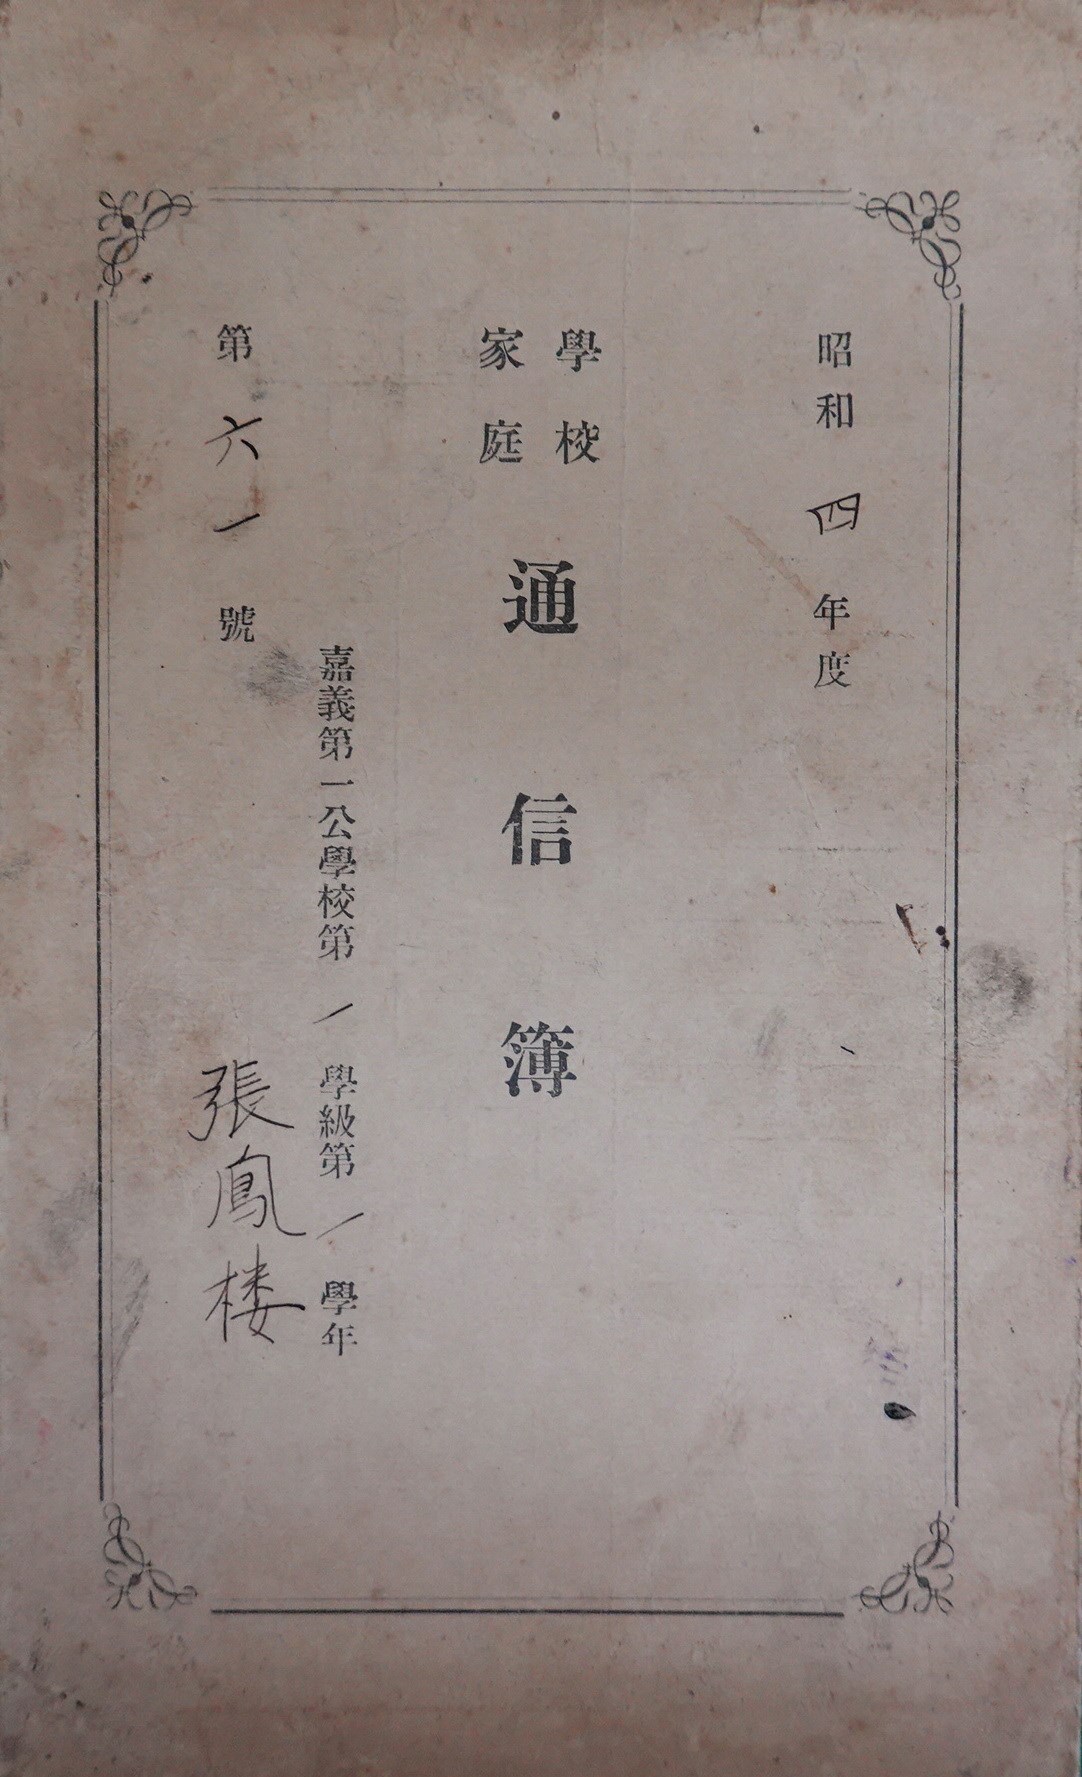 昭和四年度
學校
家庭
通信簿
嘉義第一公學校第一學級第一學年
第六一號
張鳳楼